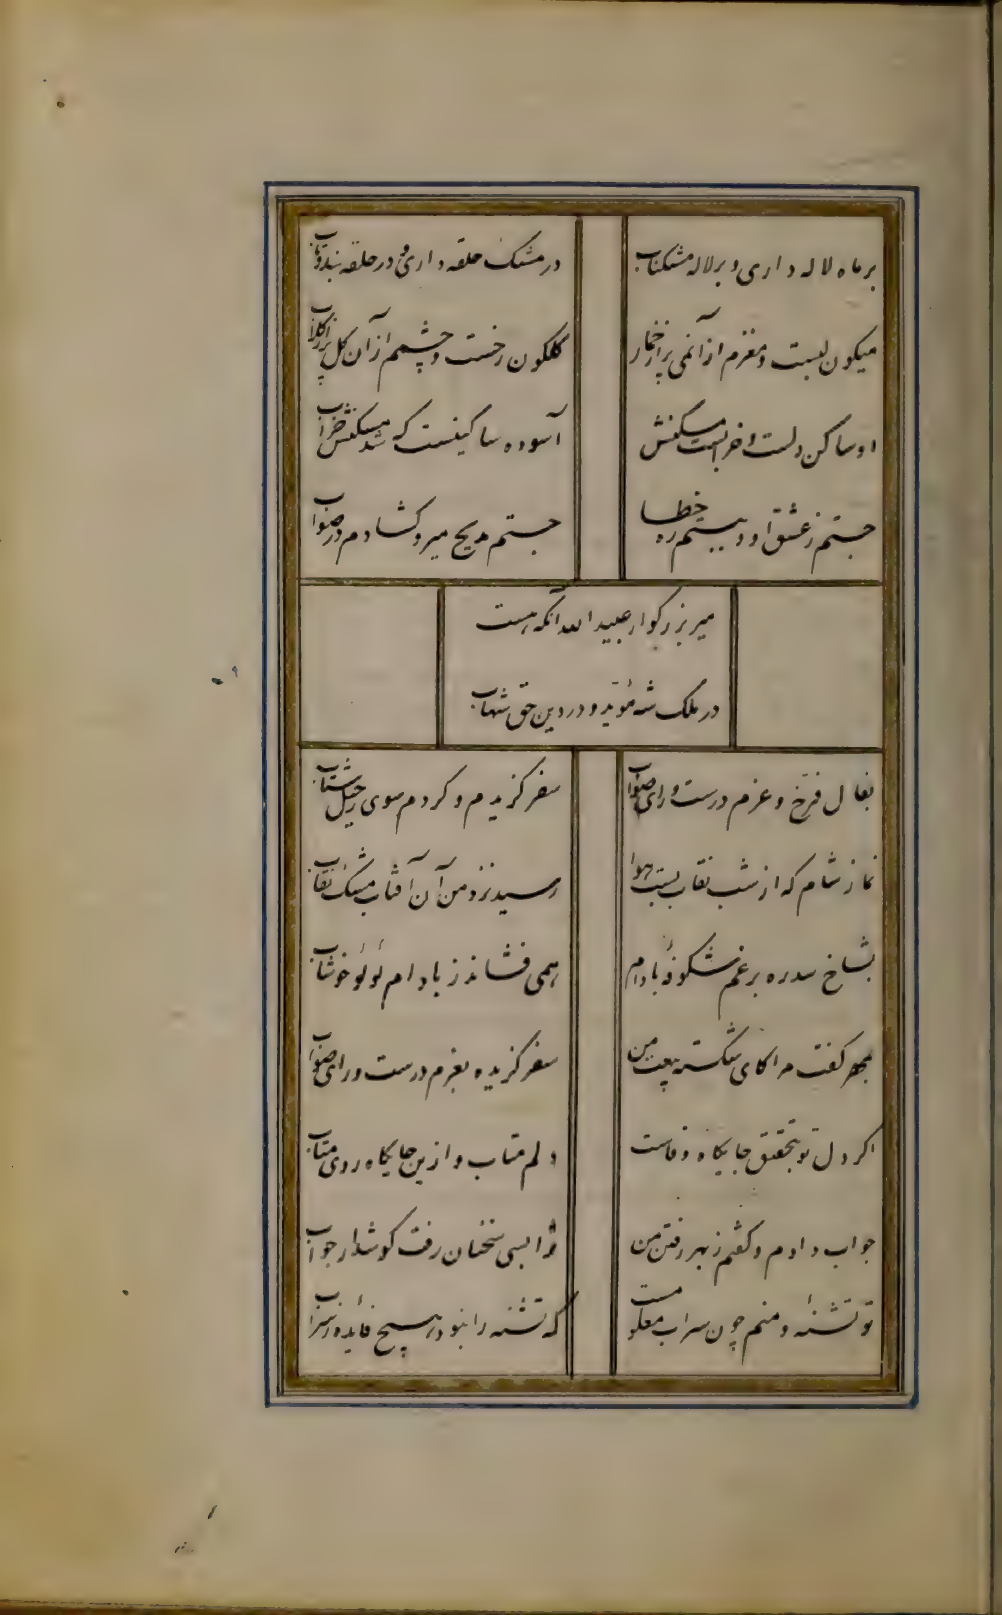 بر ماه لاله داری و بر لاله مشکناب
در مشک حلقه داری و در حلقه بند و تاب
میکون لبست و مغزم از آن می پر از خمار
کلکون رخست و چشمم از آن کل پر از کلاب
او ساکن دلست و خرابست مسکنش
آسوده ساکینست که شد مسکنش خراب
جستم ز عشق او و ببستم ره خطا
جستم مدیح میر و کشادم در صواب
میر بزرکوار عبید الله آنکه هست
در ملک شه مؤید و در دین حق شهاب
بفال فرّخ و عزم درست و رای صواب
سفر کزیدم و کردم سوی رحیل شتاب
نماز شام که از شب نقاب بست هوا
رسید نزد من آن آفتاب مشک نقاب
بشاخ سدره بر غم شکوفهٔ بادام
همی فشاند ز بادام لؤلؤ خوشاب
بمهر کفت مرا کای شکسته بیعت من
سفر کزیده بعزم درست و رای صواب
اکر دل تو بتحقیق جایکاه وفاست
دلم متاب و ازین جایکاه روی متاب
جواب دادم و کفتم ز بهر رفتن من
ترا بسی سخنان رفت کوش دار جواب
تو تشنهٔ و منم چون سراب معلومست
که تشنه را نبود هیچ فایده ز سراب